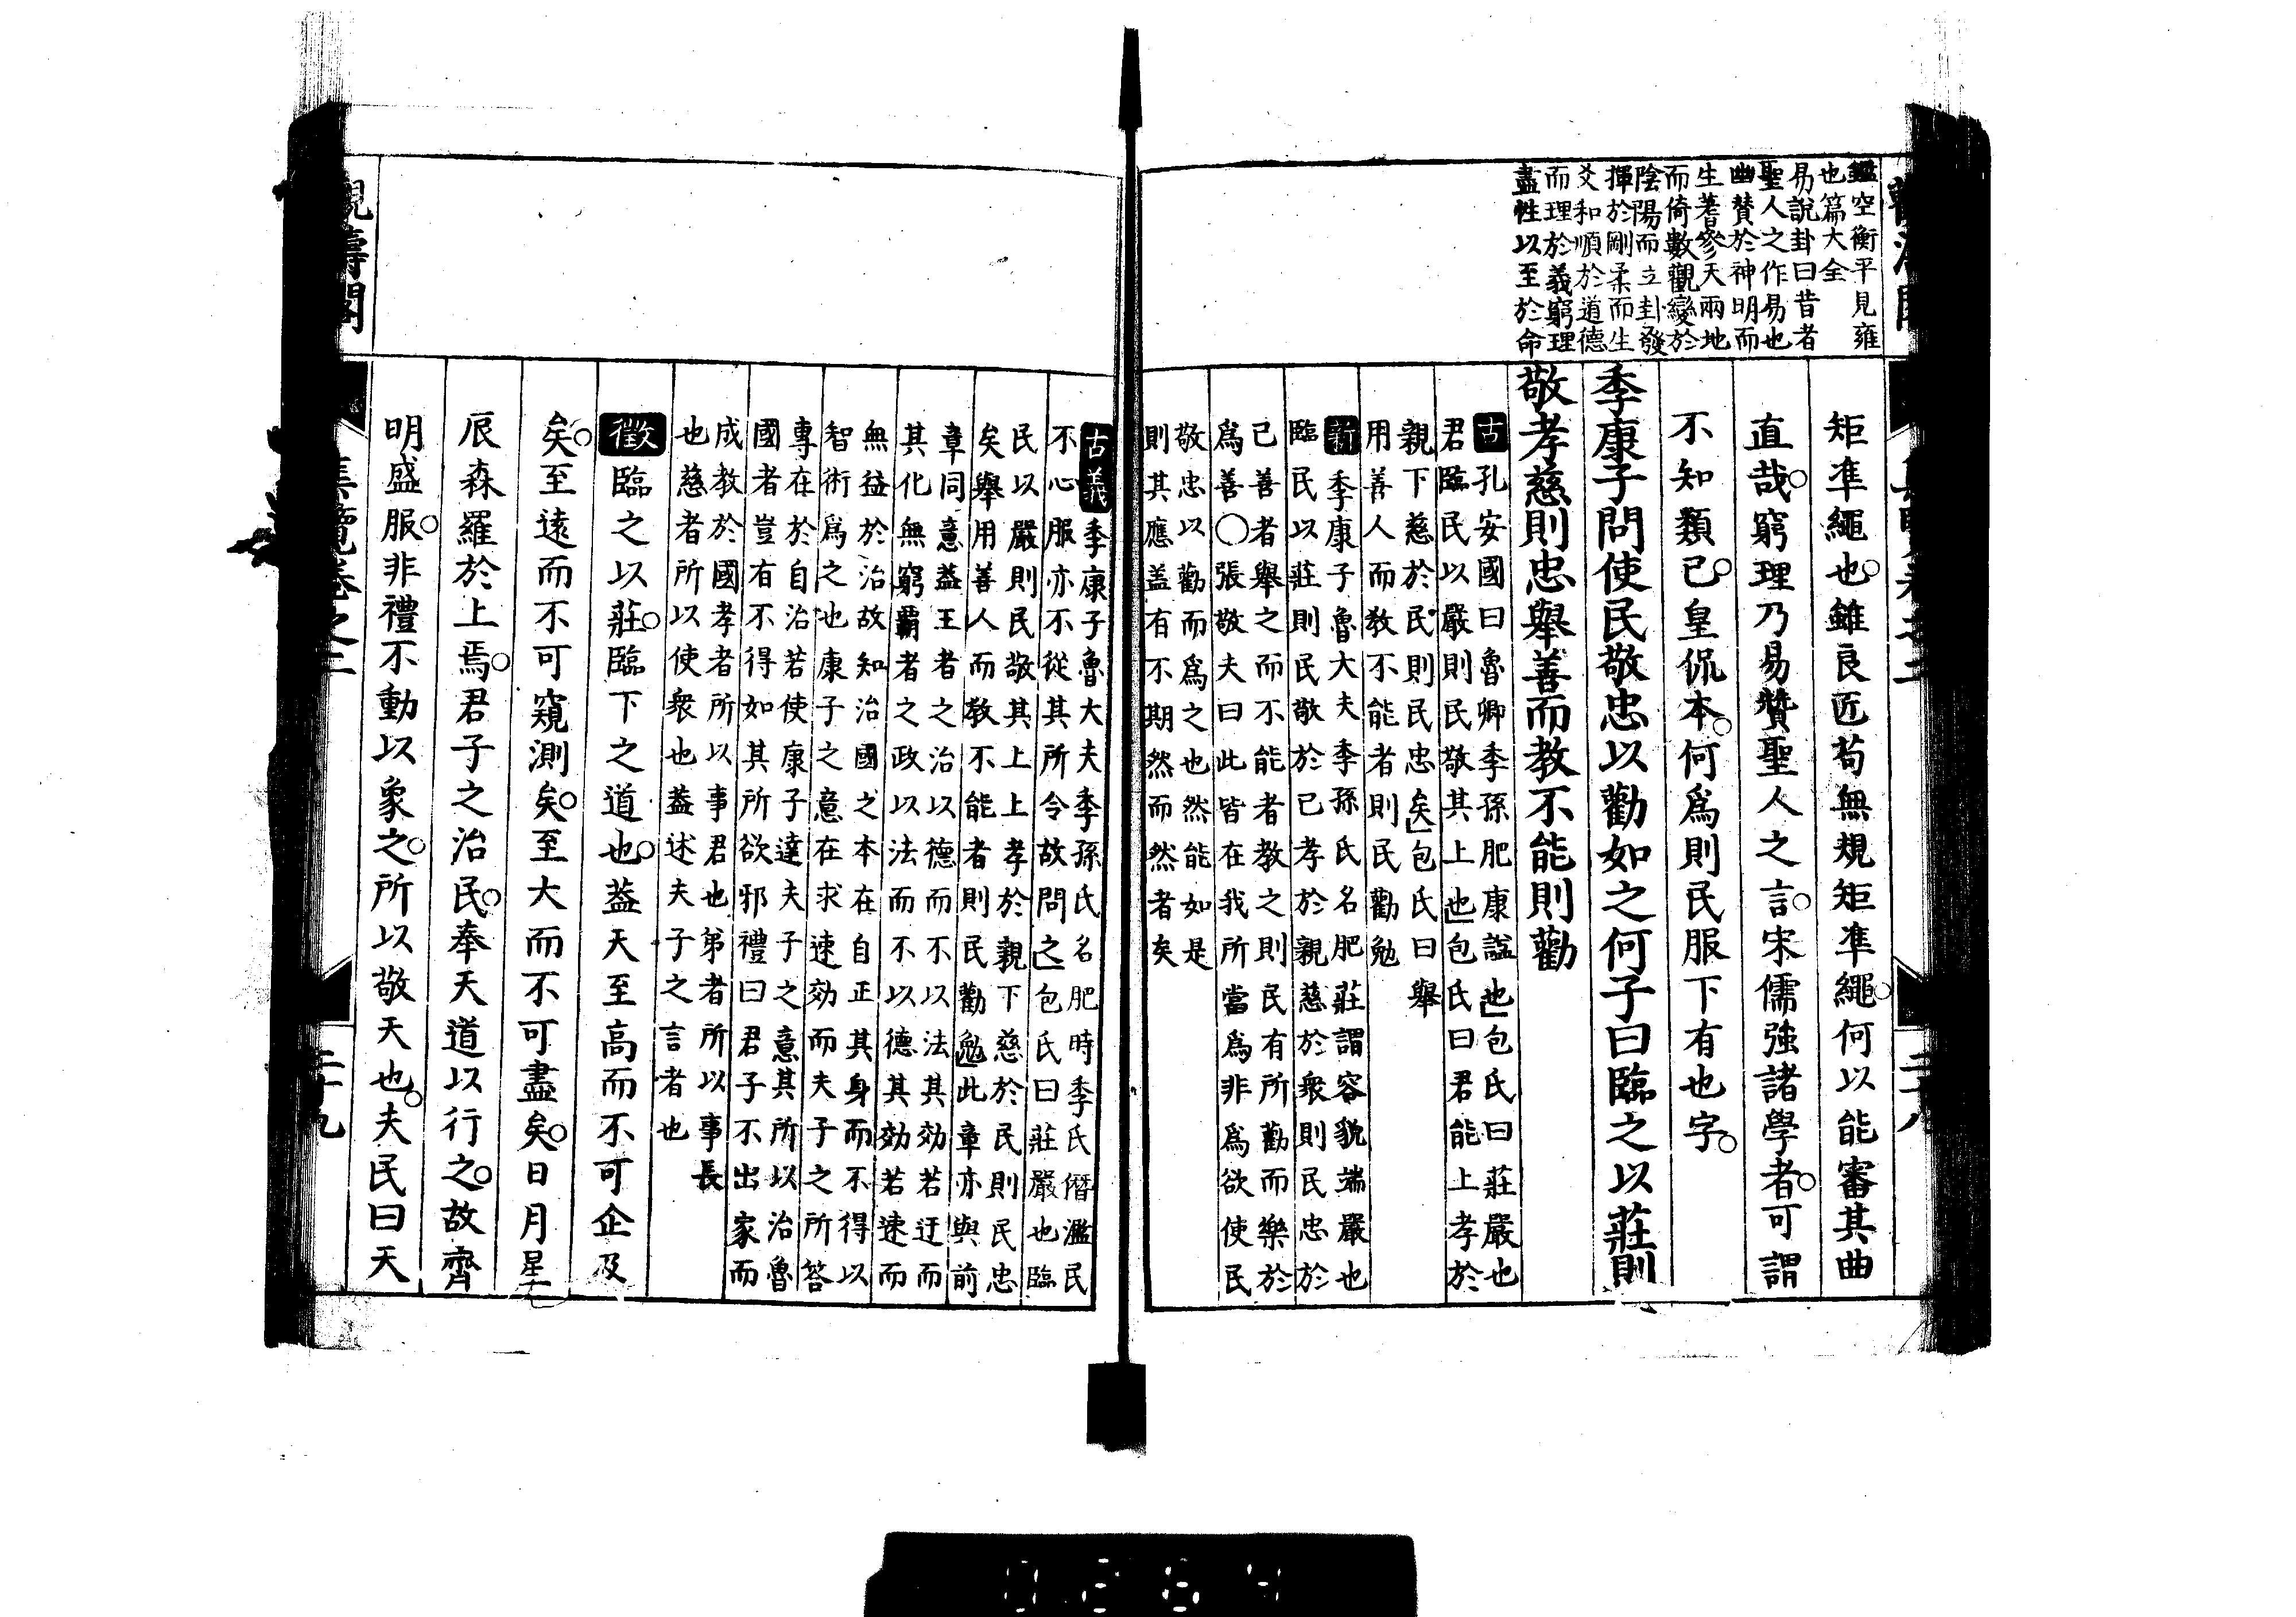 鑑空衡平見雍
也篇大全
易說卦曰昔者
聖人之作易也
幽賛於神明而
生蓍參天兩地
而倚數觀變於
陰陽而立卦發
揮於剛柔而生
爻和順於道德
而理於義窮理
盡性以至於命
矩準繩也○雖良匠苟無規矩準繩○何以能審其曲
直哉○窮理乃易贊聖人之言○宋儒強諸學者○可謂
不知類已○皇侃本○何爲則民服下有也字○
季康子問使民敬忠以勸如之何子曰臨之以莊則
敬孝慈則忠舉善而教不能則勸
古孔安國曰魯卿季孫肥康諡也包氏曰莊嚴也
君臨民以嚴則民敬其上也包氏曰君能上孝於
親下慈於民則民忠矣包氏曰舉
用善人而教不能者則民勸勉
新季康子魯大夫季孫氏名肥莊謂容貌端嚴也
臨民以莊則民敬於己孝於親慈於衆則民忠於
己善者舉之而不能者教之則民有所勸而樂於
爲善○張敬夫曰此皆在我所當爲非爲欲使民
敬忠以勸而爲之也然能如是
則其應盖有不期然而然者矣
古義季康子魯大夫季孫氏名肥時季氏僭濫民
不心服亦不從其所令故問之包氏曰莊嚴也臨
民以嚴則民敬其上上孝於親下慈於民則民忠
矣舉用善人而教不能者則民勸勉此章亦與前
章同意盖王者之治以德而不以法其効若迂而
其化無窮覇者之政以法而不以德其効若速而
無益於治故知治國之本在自正其身而不得以
智術爲之也康子之意在求速効而夫子之所答
專在於自治若使康子達夫子之意其所以治魯
國者豈有不得如其所欲邪禮曰君子不出家而
成教於國孝者所以事君也弟者所以事長
也慈者所以使衆也盖述夫子之言者也
徵臨之以莊○臨下之道也○盖天至高而不可企及
矣○至遠而不可窺測矣○至大而不可盡矣○日月星
辰森羅於上焉○君子之治民○奉天道以行之○故齊
明盛服○非禮不動以象之○所以敬天也○夫民曰天